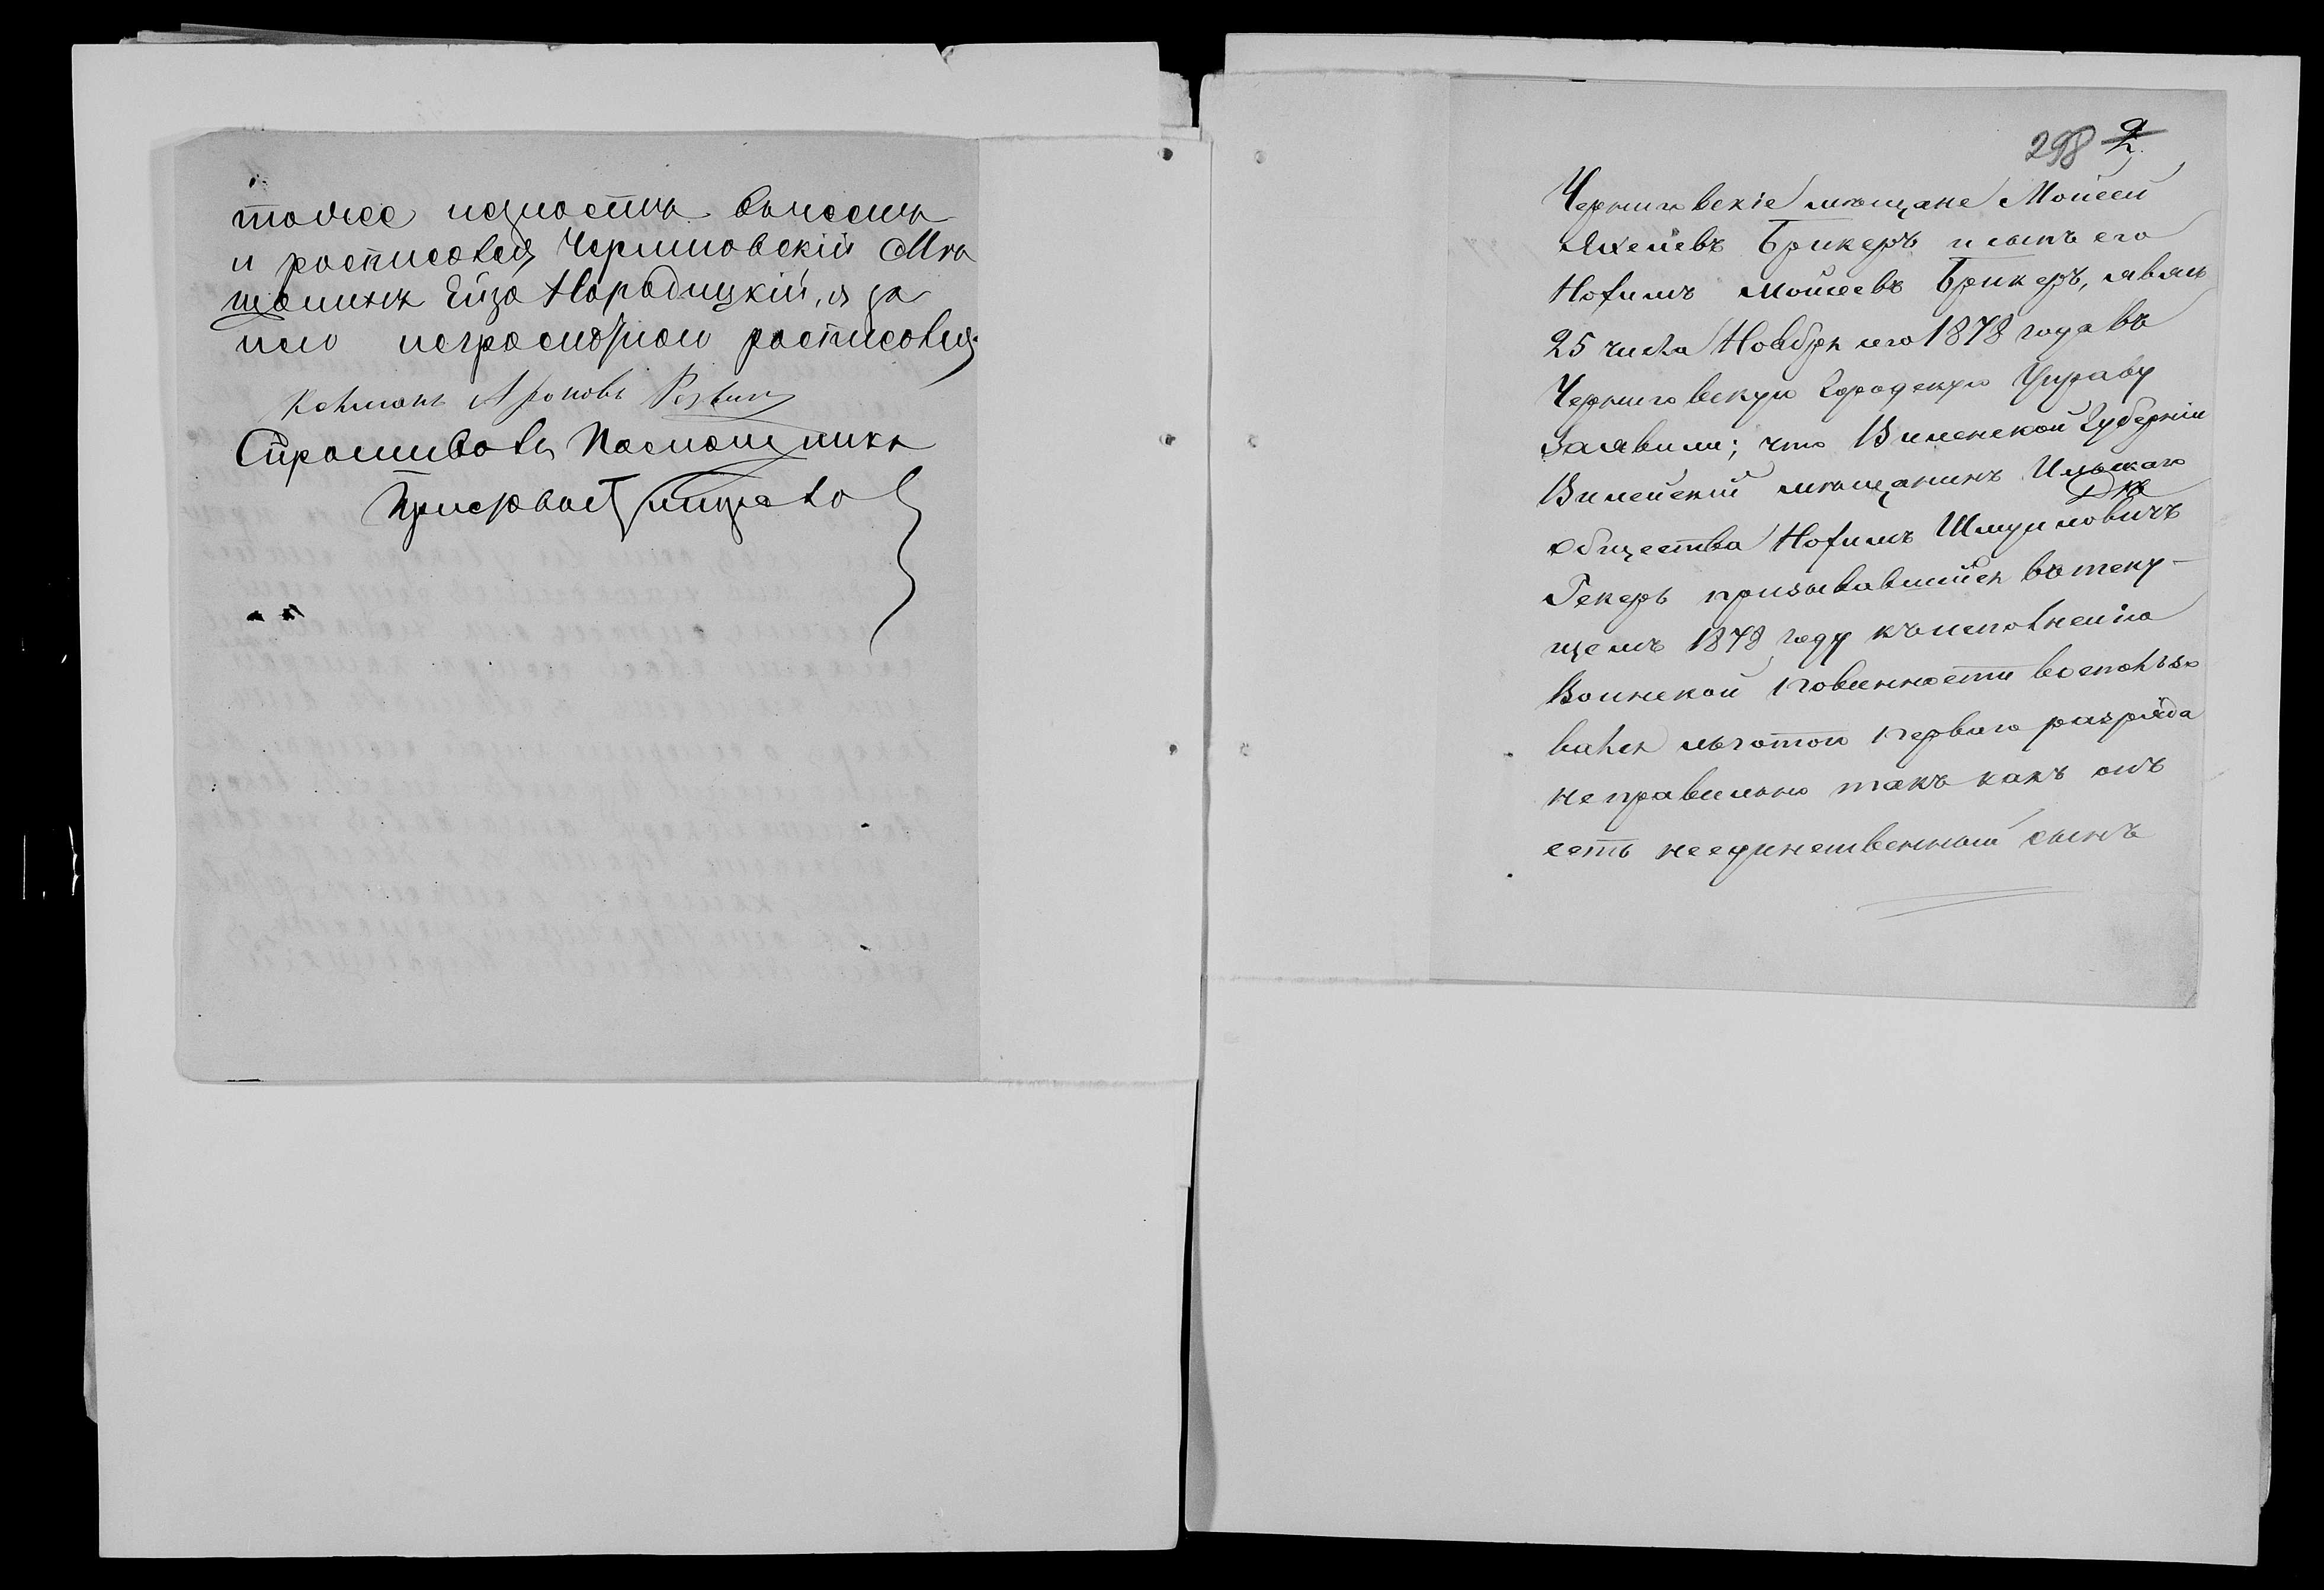 тоже
и росписовся Черниговскій Мѣ
щанинъ Ейзо Народицкій, а за
него неграмотнои росписовся
Калманъ Ароновъ
Спрашивалъ Помощника
Пристава
298 2
Черниговскіе мѣщане Мойсей
Брикеръ и сынъ его
Нохимъ Мойсеевъ Брикеръ, явясь
25 числа Ноября сего 1878 года въ
Черниговскую Городскую Управу
Заявили; что Виленской Губерніи
Вилейскій мѣщанинъ Ильскаго
общества Нохимъ Шмуиловичъ
Гекеръ призывавшійся въ теку-
щемъ 1878 году къ исполненію
Воинской повинности воспользо
вался льготою перваго разряда
неправильно такъ какъ онъ
есть неединственный сынъ